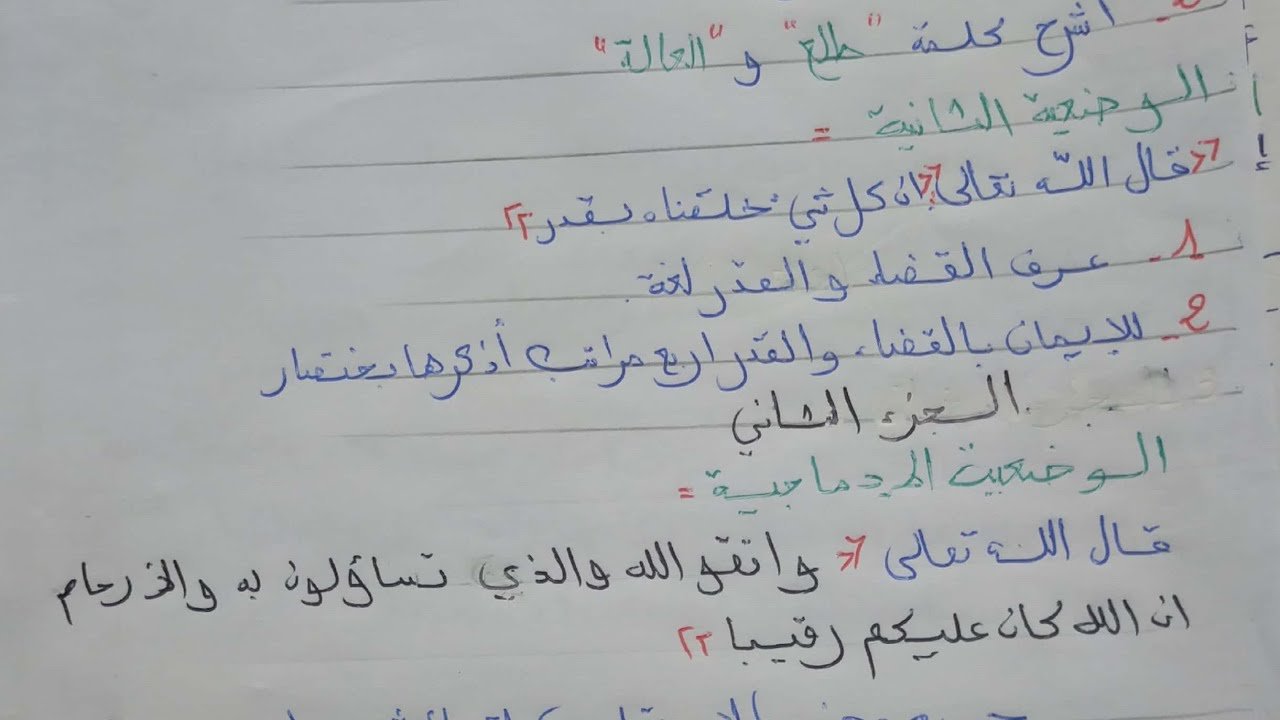 اشرح كلمة "طلع" و "العالة"
الوضعية الثانية =
«قال الله تعالى «إن كل شيء خلقناه بقدر»
1- عرف القضاء والقدر لغة.
2- للإيمان بالقضاء والقدر اربع مراتب أذكرها بختصار
الجزء الثاني
الوضعية الإدماجية =
قال الله تعالى « واتقو الله والذي تساؤلون به والارحام
ان الله كان عليكم رقيبا »